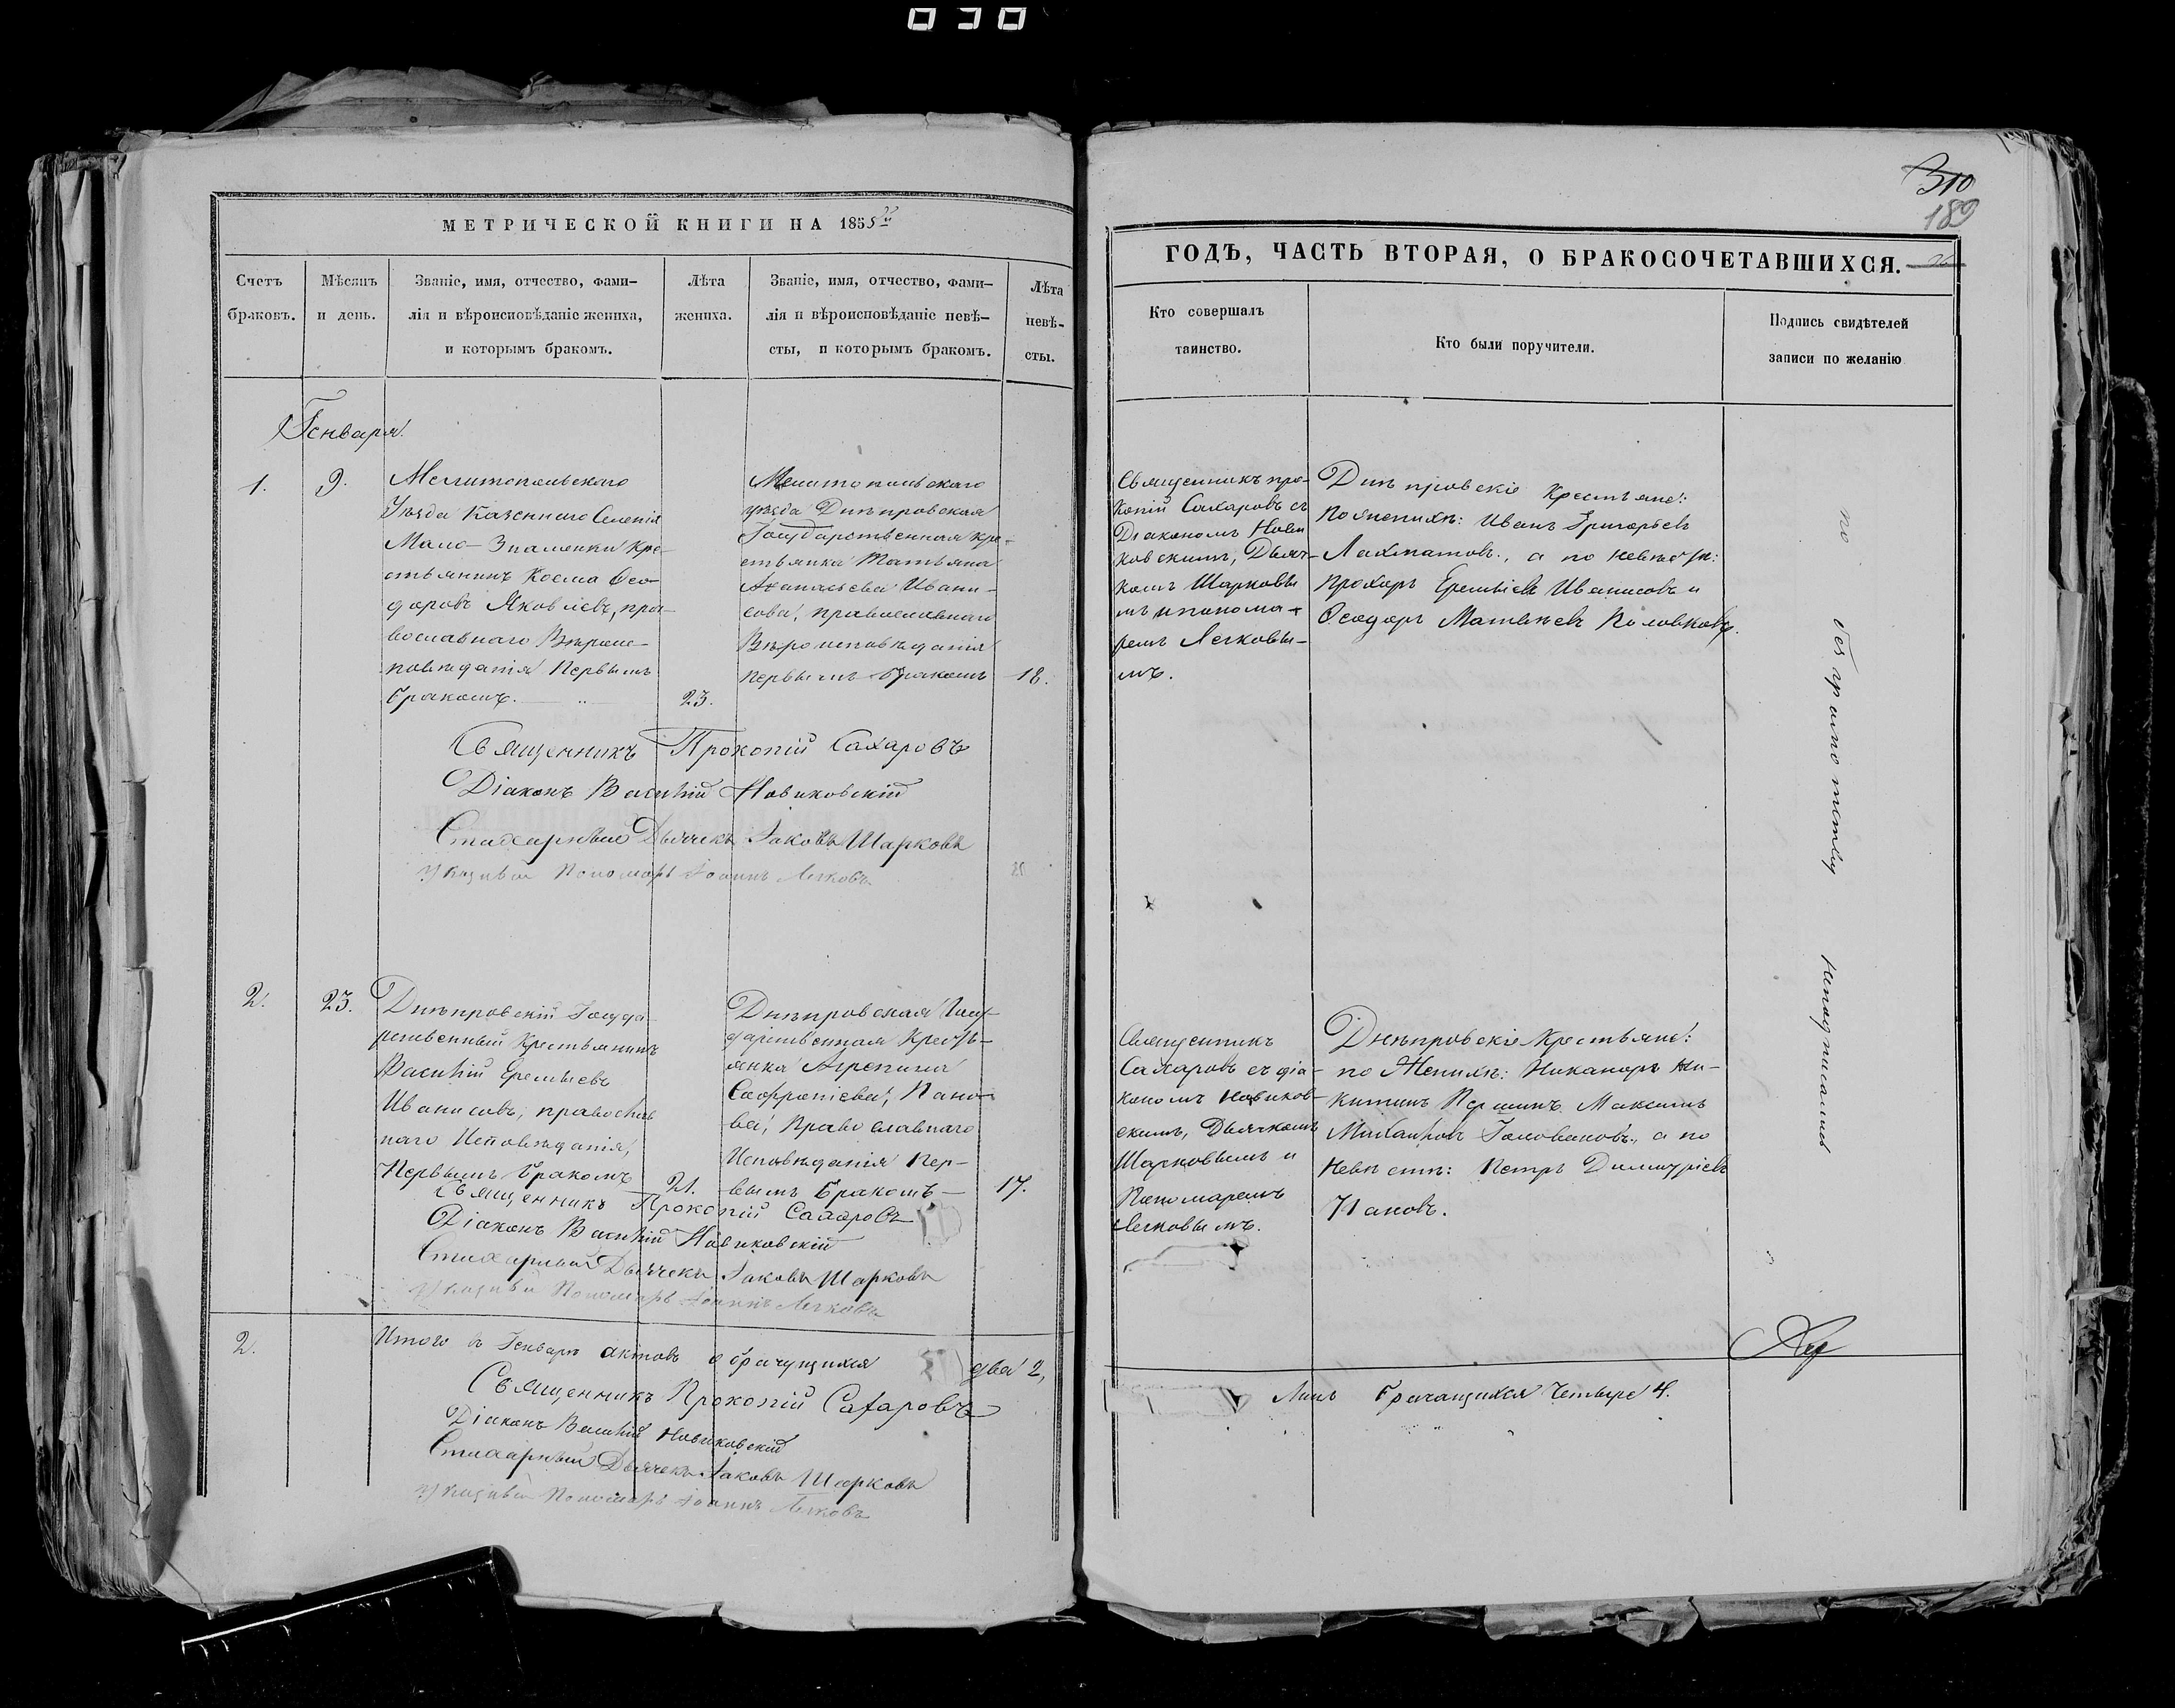 030
310
189
МЕТРИЧЕСКОЙ КНИГИ НА 1855й
Счетъ браковъ.
Мѣсяцъ и день.
Званіе, имя, отчество, фами-
лія и вѣроисповѣданіе жениха,
и которымъ бракомъ.
Лѣта жениха.
Званіе, имя, отчество, фами-
лія и вѣроисповѣданіе невѣ-
сты, и которымъ бракомъ.
Лѣта невѣ-
сты.
Генваря
1.
9.
Мелитопольскаго
Уѣзда Казеннаго Селенія
Мало-Знаменки Кре-
стьянинъ Косма Ѳео-
доровъ Яковлевъ, пра-
вославнаго Вѣроис-
повѣданія Первымъ
бракомъ.
23.
Мелитопольскаго
уѣзда Днѣпровская
Государственная Кре-
стьянка Татьяна
Аѳанасьева Ивани-
сова, православнаго
Вѣроисповѣданія
первымъ бракомъ
18.
Священникъ Прокопій Сахаровъ
Діаконъ Василій Новиковскій
Стихарный Дьячекъ Іаковъ Шарковъ
Указный Пономарь Іоаннъ Легковъ
2.
23.
Днѣпровскій Госуда-
рственный Крестьянинъ
Василій Еремѣевъ
Иванисовъ, православ
наго Исповѣданія,
Первымъ бракомъ
21.
Днѣпровская Госу-
дарственная Кресть-
янка Агрепина
Сафроніева, Пано-
ва, Православнаго
Исповѣданія Пер-
вымъ бракомъ
17.
Священникъ Прокопій Сахаровъ
Діаконъ Василій Новиковскій
Стихарный Дьячекъ Іаковъ Шарковъ
Указный Пономарь Іоаннъ Легковъ
2.
Итого в Генварѣ актовъ о брачущихся два 2,
Священникъ Прокопій Сахаровъ
Діаконъ Василій Новиковскій
Стихарный Дьячекъ Іаковъ Шарковъ
Указный Пономарь Іоаннъ Легковъ
ГОДЪ, ЧАСТЬ ВТОРАЯ, О БРАКОСОЧЕТАВШИХСЯ.
Кто совершалъ
таинство.
Кто были поручители.
Подпись свидѣтелей
записи по желанію
Священникъ про-
копій Сахаровъ съ
Діакономъ Нови
ковскимъ, Дьяч-
комъ Шарковы
мъ и понома-
ремъ Легковы-
мъ.
Днѣпровскіе Крестьяне:
По женихѣ: Иванъ Григорьевъ
Лахматовъ, а по невѣстѣ:
Прохоръ Еремѣевъ Иванисовъ и
Ѳеодоръ Матвѣевъ Половковъ.
Священникъ
Сахаровъ съ діа-
кономъ Новиков-
скимъ, Дьячкомъ
Шарковымъ и
Пономаремъ
Легковымъ.
Днѣпровскіе Крестьяне:
по Женихѣ: Никаноръ Ни-
китинъ Першинъ Максимъ
Михайловъ Головановъ, а по
Невѣстѣ: Петръ Димитріевъ
Пановъ.
по безграмотству неподписались
Лицъ брачащихся Четыре 4.